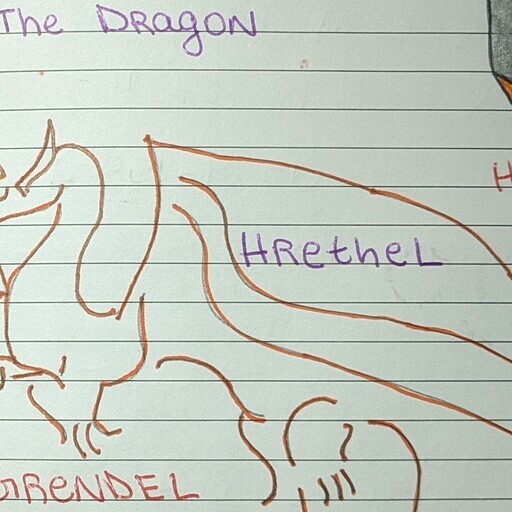 The DRagoN
HRetheL
GReNDEL